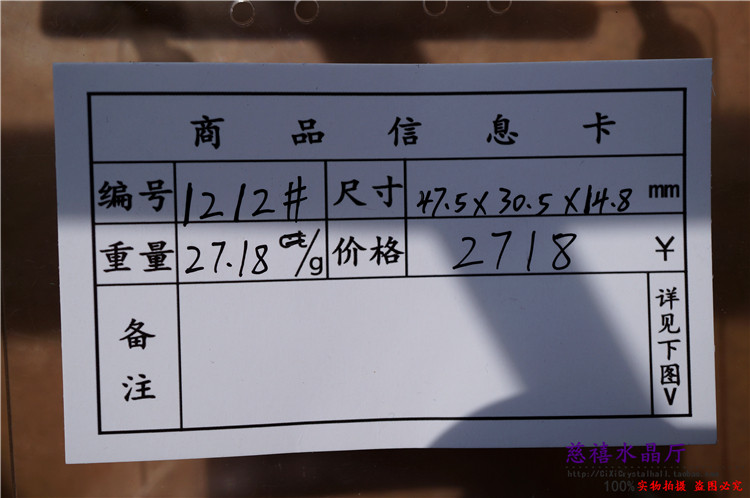 商品信息卡
编号 1212# 尺寸 47.5X30.5X14.8 mm
重量 27.18 ct/g 价格 2718 ¥
备注 详见下图V
慈禧水晶厅
100%实物拍摄 盗图必究